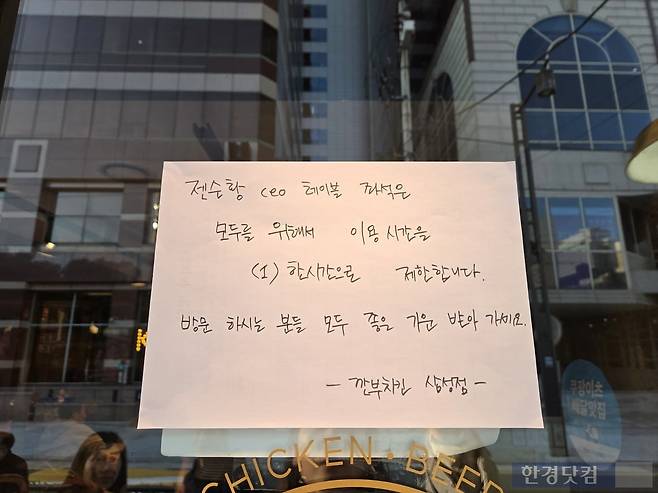 젠슨황 ceo 테이블 좌석은
모두를 위해서 이용시간을
(1) 한시간으로 제한합니다.
방문 하시는 분들 모두 좋은 기운 받아 가세요.
- 깐부치킨 삼성점 -
쿠팡이츠
배달맛집
CHICKEN · BEER
한경닷컴